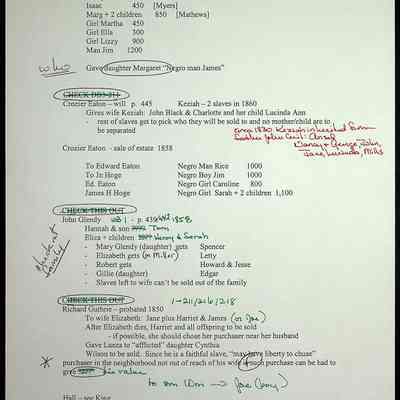 Isaac 450 [Myers]
Marg + 2 children 850 [Mathews]
Girl Martha 450
Girl Ella 300
Girl Lizzy 900
Man Jim 1200
who Gave daughter Margaret "Negro man James"
CHECK DB3-211
Crozier Eaton – will p. 445 Keziah – 2 slaves in 1860
Gives wife Keziah: John Black & Charlotte and her child Lucinda Ann
- rest of slaves get to pick who they will be sold to and no mother/child are to
be separated
circa 1830 Keziah inherited from
Nancy & George, John,
Jane, Lucinda, Mills
Crozier Eaton - sale of estate 1858
To Edward Eaton Negro Man Rice 1000
To Jo Hoge Negro Boy Jim 1000
Ed. Eaton Negro Girl Caroline 800
James H Hoge Negro Girl Sarah + 2 children 1,100
CHECK THIS OUT
John Glendy WB1 - p. 439/442 1858
Hannah & son Tom
Eliza + children Henry & Sarah
- Mary Glendy (daughter) gets Spencer
- Elizabeth gets (or Miller) Letty
- Robert gets Howard & Jesse
- Gillie (daughter) Edgar
- Slaves left to wife can't be sold out of the family
Check out family
CHECK THIS OUT 1-211/216/218
Richard Guthrie – probated 1850
To wife Elizabeth: Jane plus Harriet & James (or Joe)
After Elizabeth dies, Harriet and all offspring to be sold
- if possible, she should chose her purchaser near her husband
Gave Luiza to "afflicted" daughter Cynthia
Wilson to be sold. Since he is a faithful slave, "may have liberty to chuse"
purchaser in the neighborhood not out of reach of his wife if such purchase can be had to
give his value
to son Wm → Joe (boy)
Hall – see King